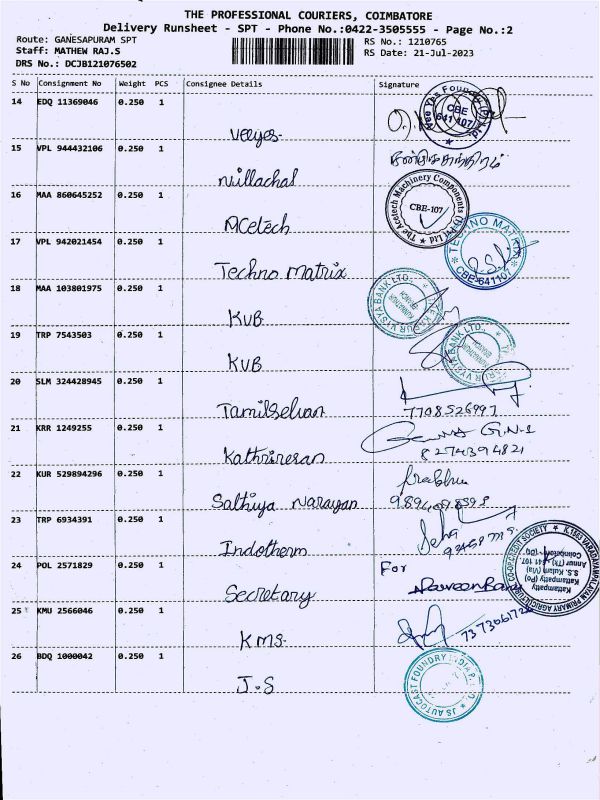 THE PROFESSIONAL COURIERS, COIMBATORE
Delivery Runsheet - SPT - Phone No.:0422-3505555 - Page No.:2
Route: GANESAPURAM SPT
RS No.: 1210765
Staff: MATHEW RAJ.S
RS Date: 21-Jul-2023
DRS No.: DCJB121076502
S No Consignment No Weight PCS Consignee Details Signature
14 EDQ 11369046 0.250 1
Veeyes-
CBE 641 107
15 VPL 944432106 0.250 1
Nillachal
16 MAA 860645252 0.250 1
Acetech
The Acetech Machinery Components (I) Pvt Ltd
CBE-107
17 VPL 942021454 0.250 1
Techno Matrix
TECHNO MATRIX
CBE-641107
18 MAA 103801975 0.250 1
KVB
19 TRP 7543503 0.250 1
KVB
20 SLM 324428945 0.250 1
Tamilselvan
7708526997
21 KRR 1249255 0.250 1
Kathriresan
G.N.S
8274394821
22 KUR 529894296 0.250 1
Sathiya Narayan
Prabhu
23 TRP 6934391 0.250 1
Indotherm
24 POL 2571829 0.250 1
Secretary
For
K.1563 VARADAYAMPALAYAM PRIMARY AGRICULTURAL CO-OP CREDIT SOCIETY
Kattampatty (Po)
S.S. Kulam (Via)
Annur (Tk) 641 107.
Coimbatore (Dt)
25 KMU 2566046 0.250 1
KMS.
26 BDQ 1000042 0.250 1
J.S
JS AUTOCAST FOUNDRY INDIA P. LTD